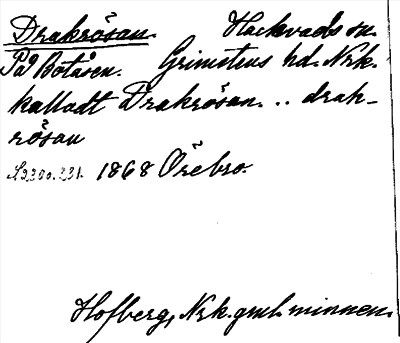 Drakrösan. Hackvads sn.
På Botåsen. Grimstens hd. Nrk.
kalladt Drakrösan. .. drak-
rösan
1868 Örebro.
Hofberg, Nrk. gml. minnen.